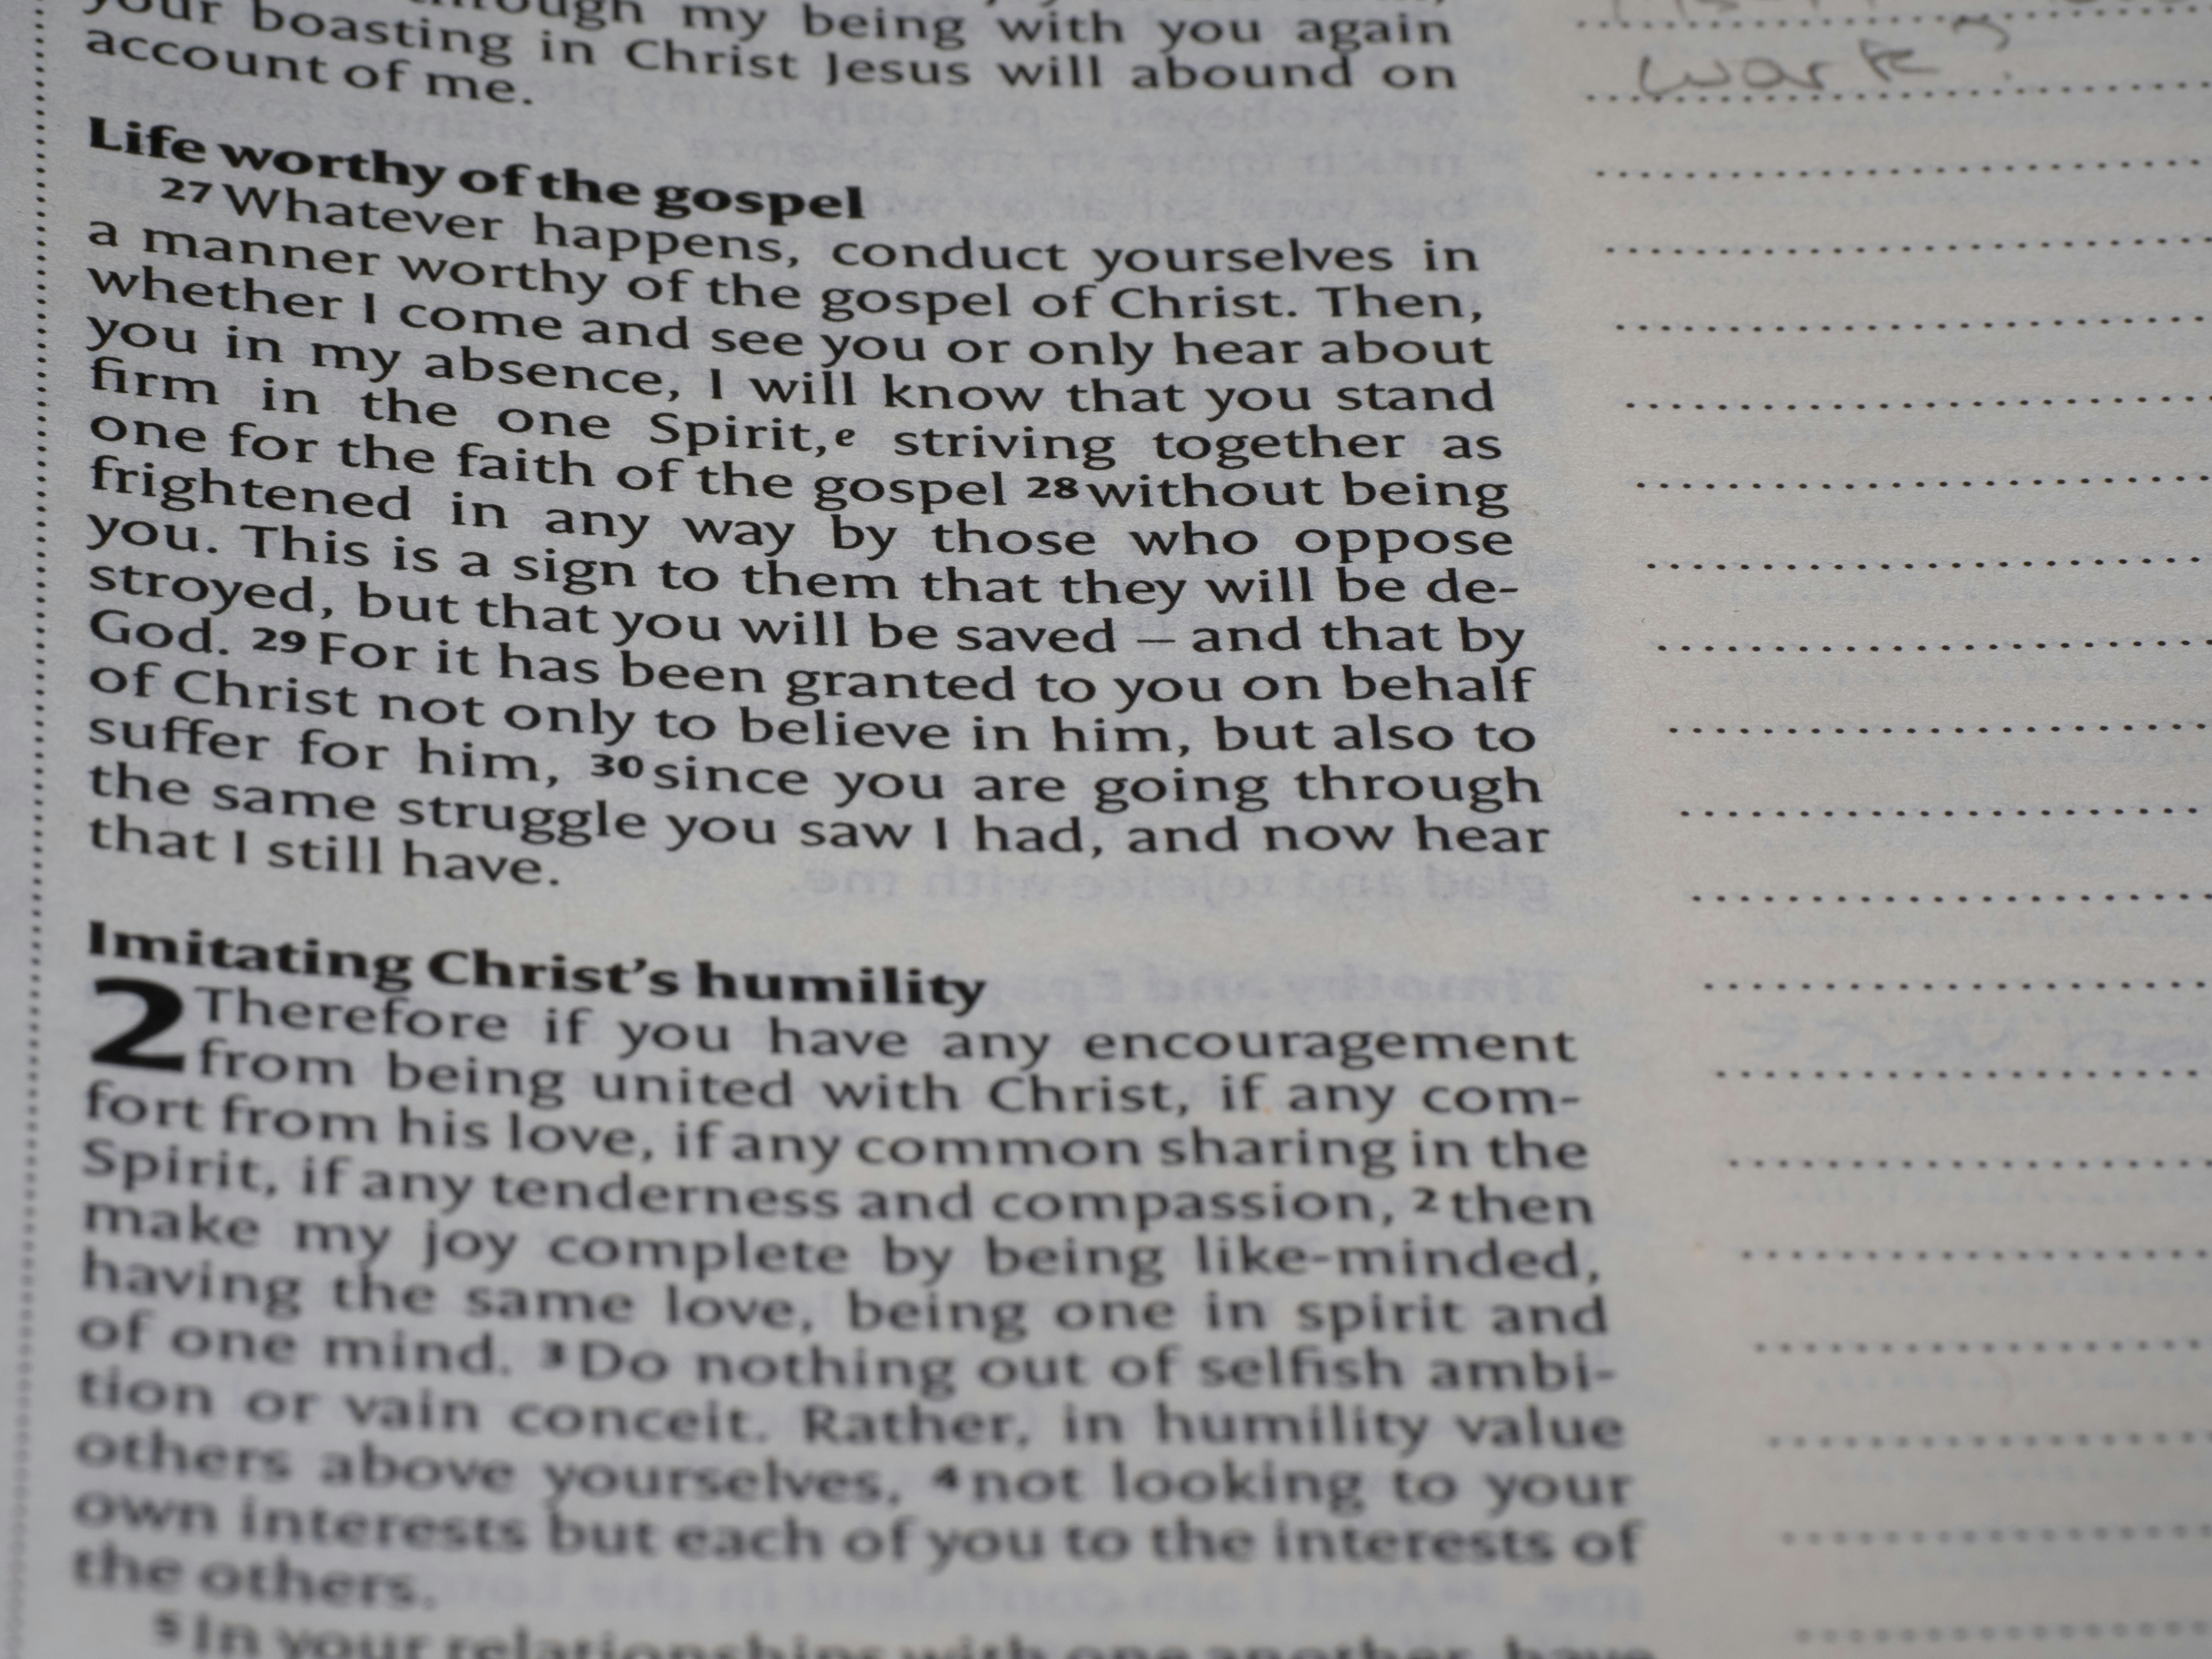 your boasting in Christ Jesus will abound on
account of me.
Life worthy of the gospel
27 Whatever happens, conduct yourselves in
a manner worthy of the gospel of Christ. Then,
whether I come and see you or only hear about
you in my absence, I will know that you stand
firm in the one Spirit,e striving together as
one for the faith of the gospel 28 without being
frightened in any way by those who oppose
you. This is a sign to them that they will be de-
stroyed, but that you will be saved – and that by
God. 29 For it has been granted to you on behalf
of Christ not only to believe in him, but also to
suffer for him, 30 since you are going through
the same struggle you saw I had, and now hear
that I still have.
Imitating Christ's humility
2 Therefore if you have any encouragement
from being united with Christ, if any com-
fort from his love, if any common sharing in the
Spirit, if any tenderness and compassion, 2 then
make my joy complete by being like-minded,
having the same love, being one in spirit and
of one mind. 3 Do nothing out of selfish ambi-
tion or vain conceit. Rather, in humility value
others above yourselves, 4 not looking to your
own interests but each of you to the interests of
the others.
5 In your relationships with one another, have
through my being with you again
work?